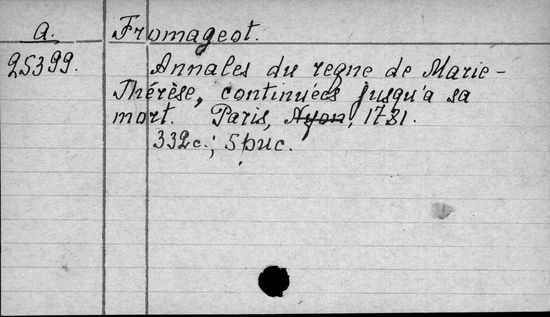 a. Fromageot.
25399. Annales du regne de Marie-
Thérèse, continuées jusqu'a sa
mort. Paris, 1781.
332c.; 5 рис.